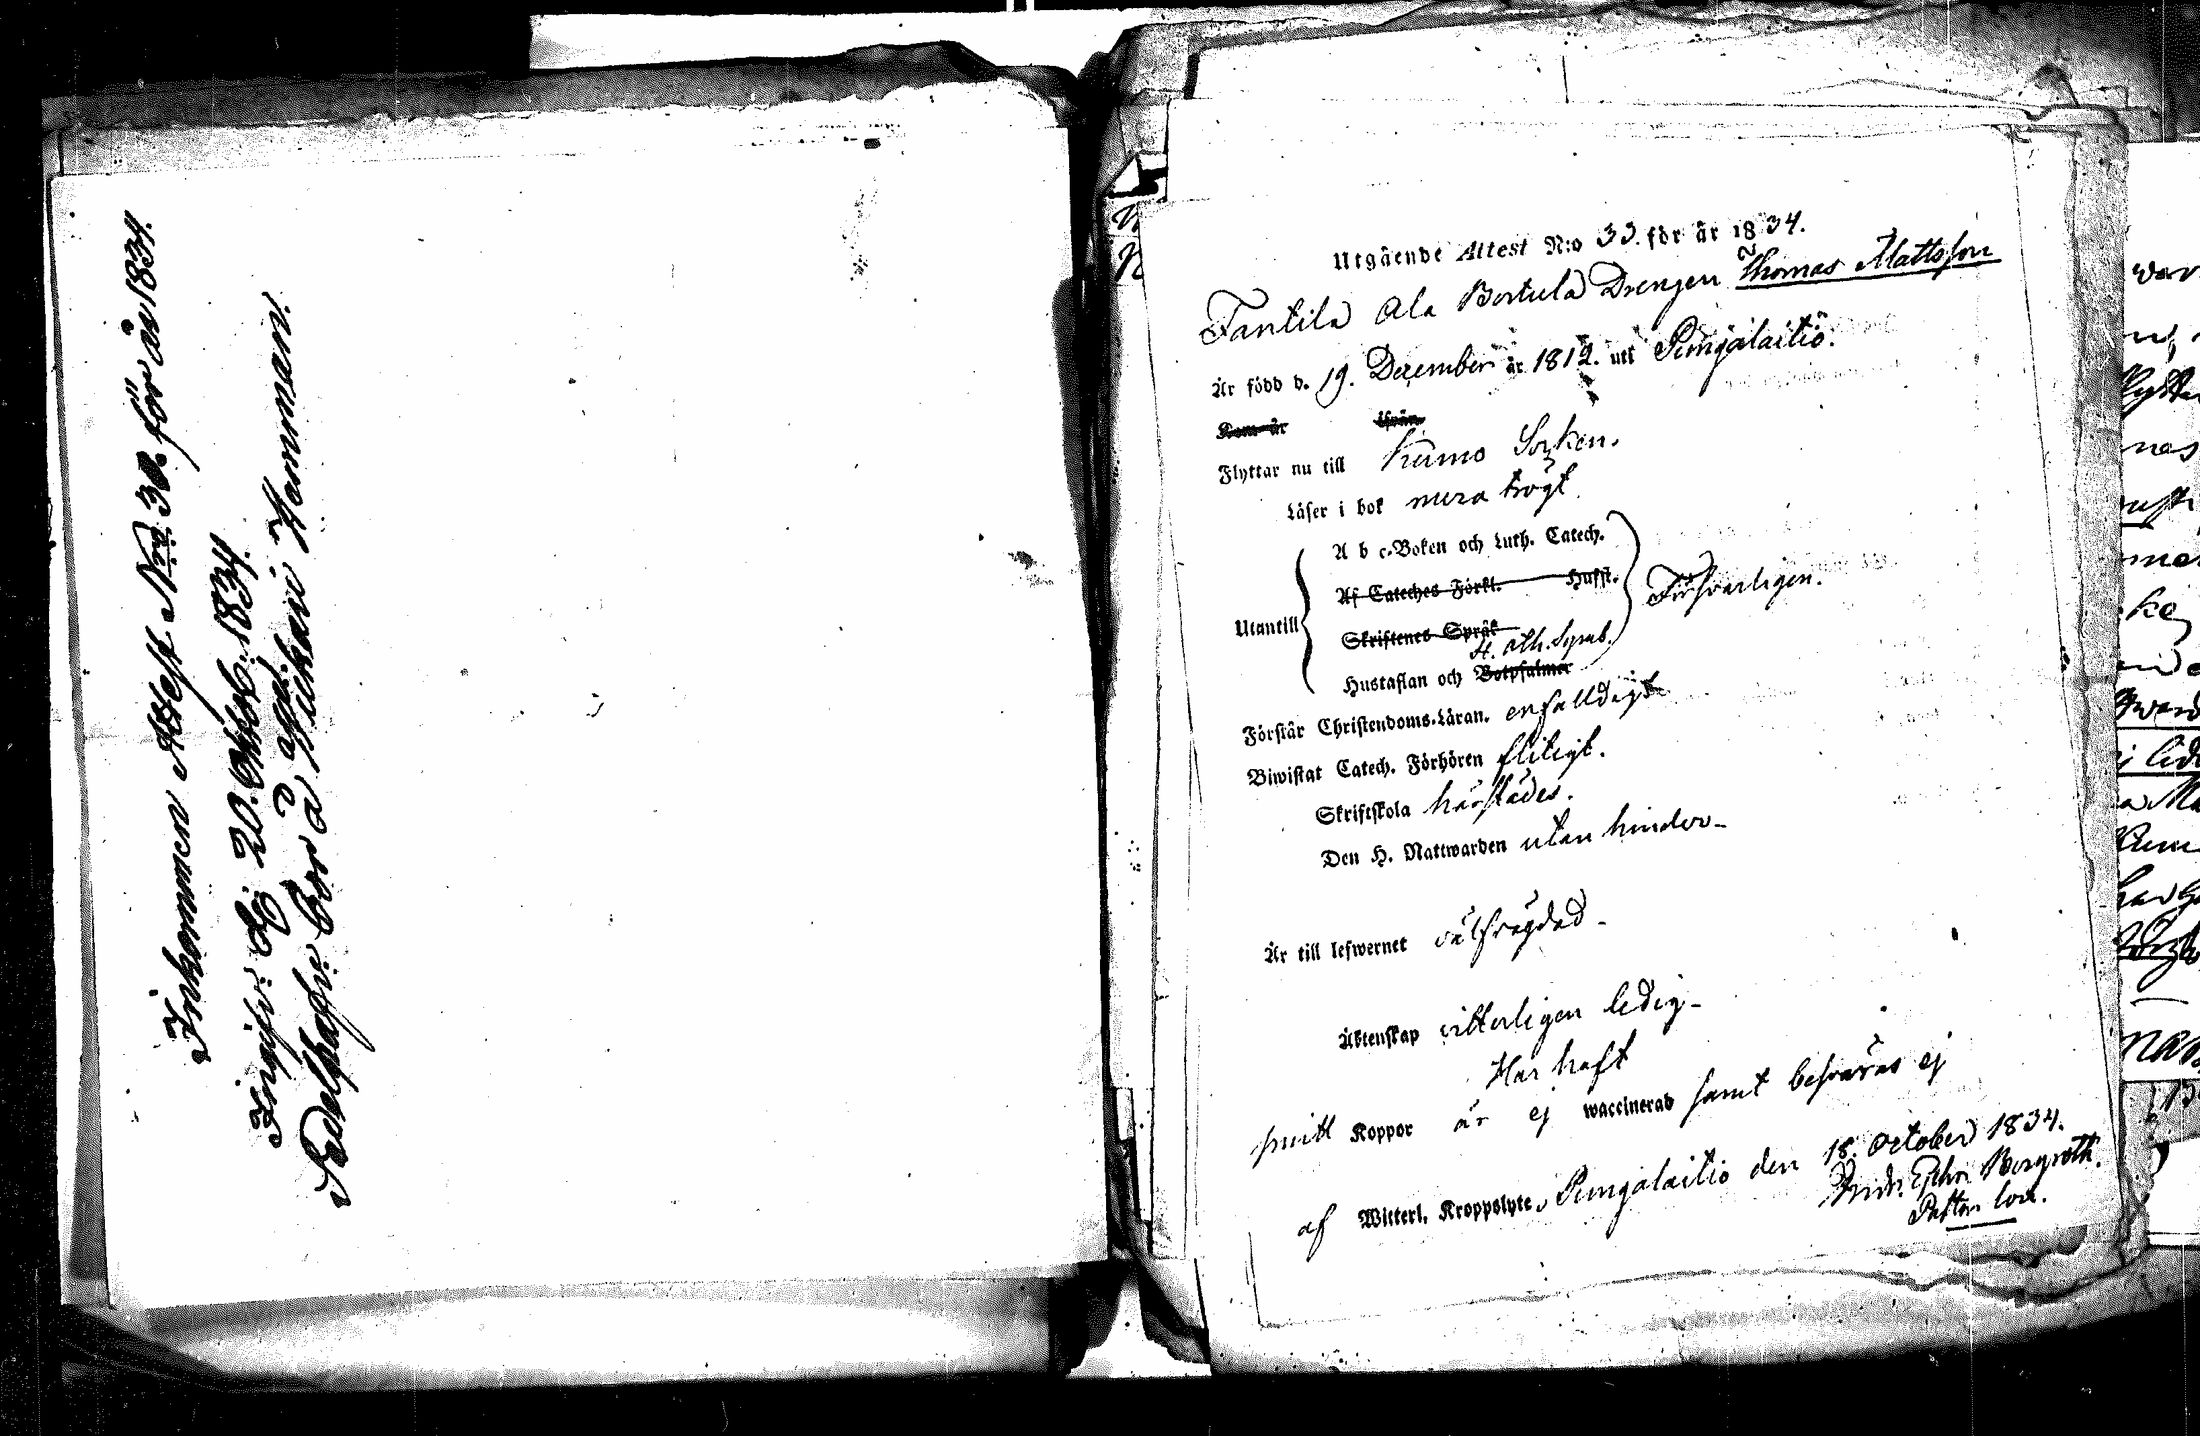 Inkommen Attest Nro 30. för år 1834.
Ingifv: d. 20. Octob. 1834
Sedelhafv: bor å Heikari Hemman.
Utgående Attest N:o 33. för år 1834.
Tantila Ala Bortula Drengen Thomas Mattsson
Är född d. 19. December år 1812. uti Pungalaitio.
Kom år ifrån
Flyttar nu till Kumo Socken.
Läser i bok mera trögt
A b c-Boken och Luth. Catech.
Af Cateches Förkl. Hufst.
Utantill
Försvarligen.
Skriftenes Språk
H. Ath. Symb.
Hustaflan och Botpsalmer
Förstår Christendoms-Läran. enfalldigt
Biwistat Catech. Förhören flitigt.
Skriftskola härstädes.
Den H. Nattwarden utan hinder
Är till lefwernet välfrägdad
Äktenskap vitterligen ledig
Har haft
Koppor är ej waccinerad samt besväras ej
af Witterl. Kroppslyte, Pungalaitio den 18. October 1834.
Bergroth.
Pastor loci.